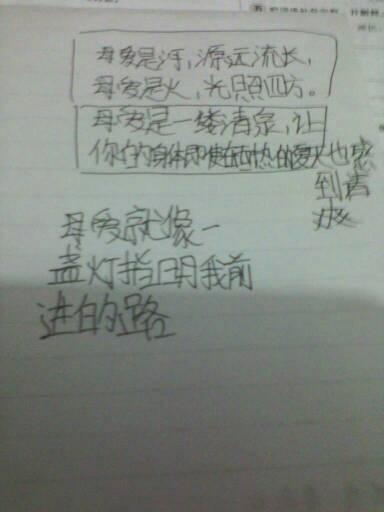 母爱是河,源远流长,
母爱是火,光照四方。
母爱是一缕清泉,让
你的身体即使在酷热的夏天也感
到清
爽
母爱就像一
盏灯指明我前
进的路